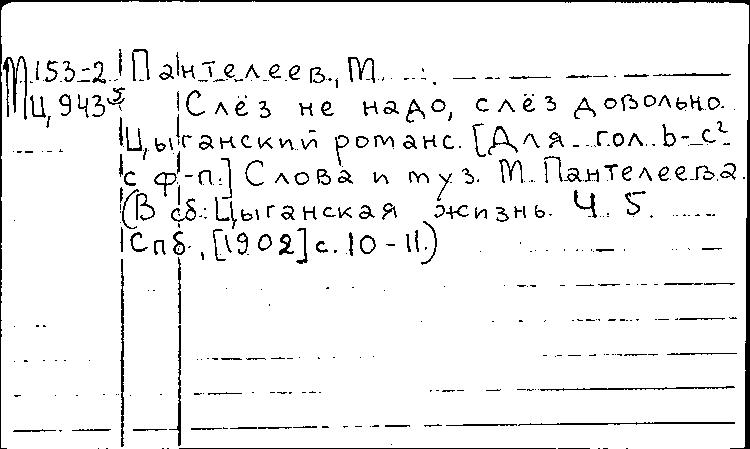 М 153-2 Пантелеев, М.
Ц 943⁵ Слёз не надо, слёз довольно.
Цыганский романс. [Для гол. b-c²
с ф-п.] Слова и муз. М. Пантелеева.
(В сб: Цыганская жизнь. Ч. 5.
Спб., [1902] с. 10-11.)